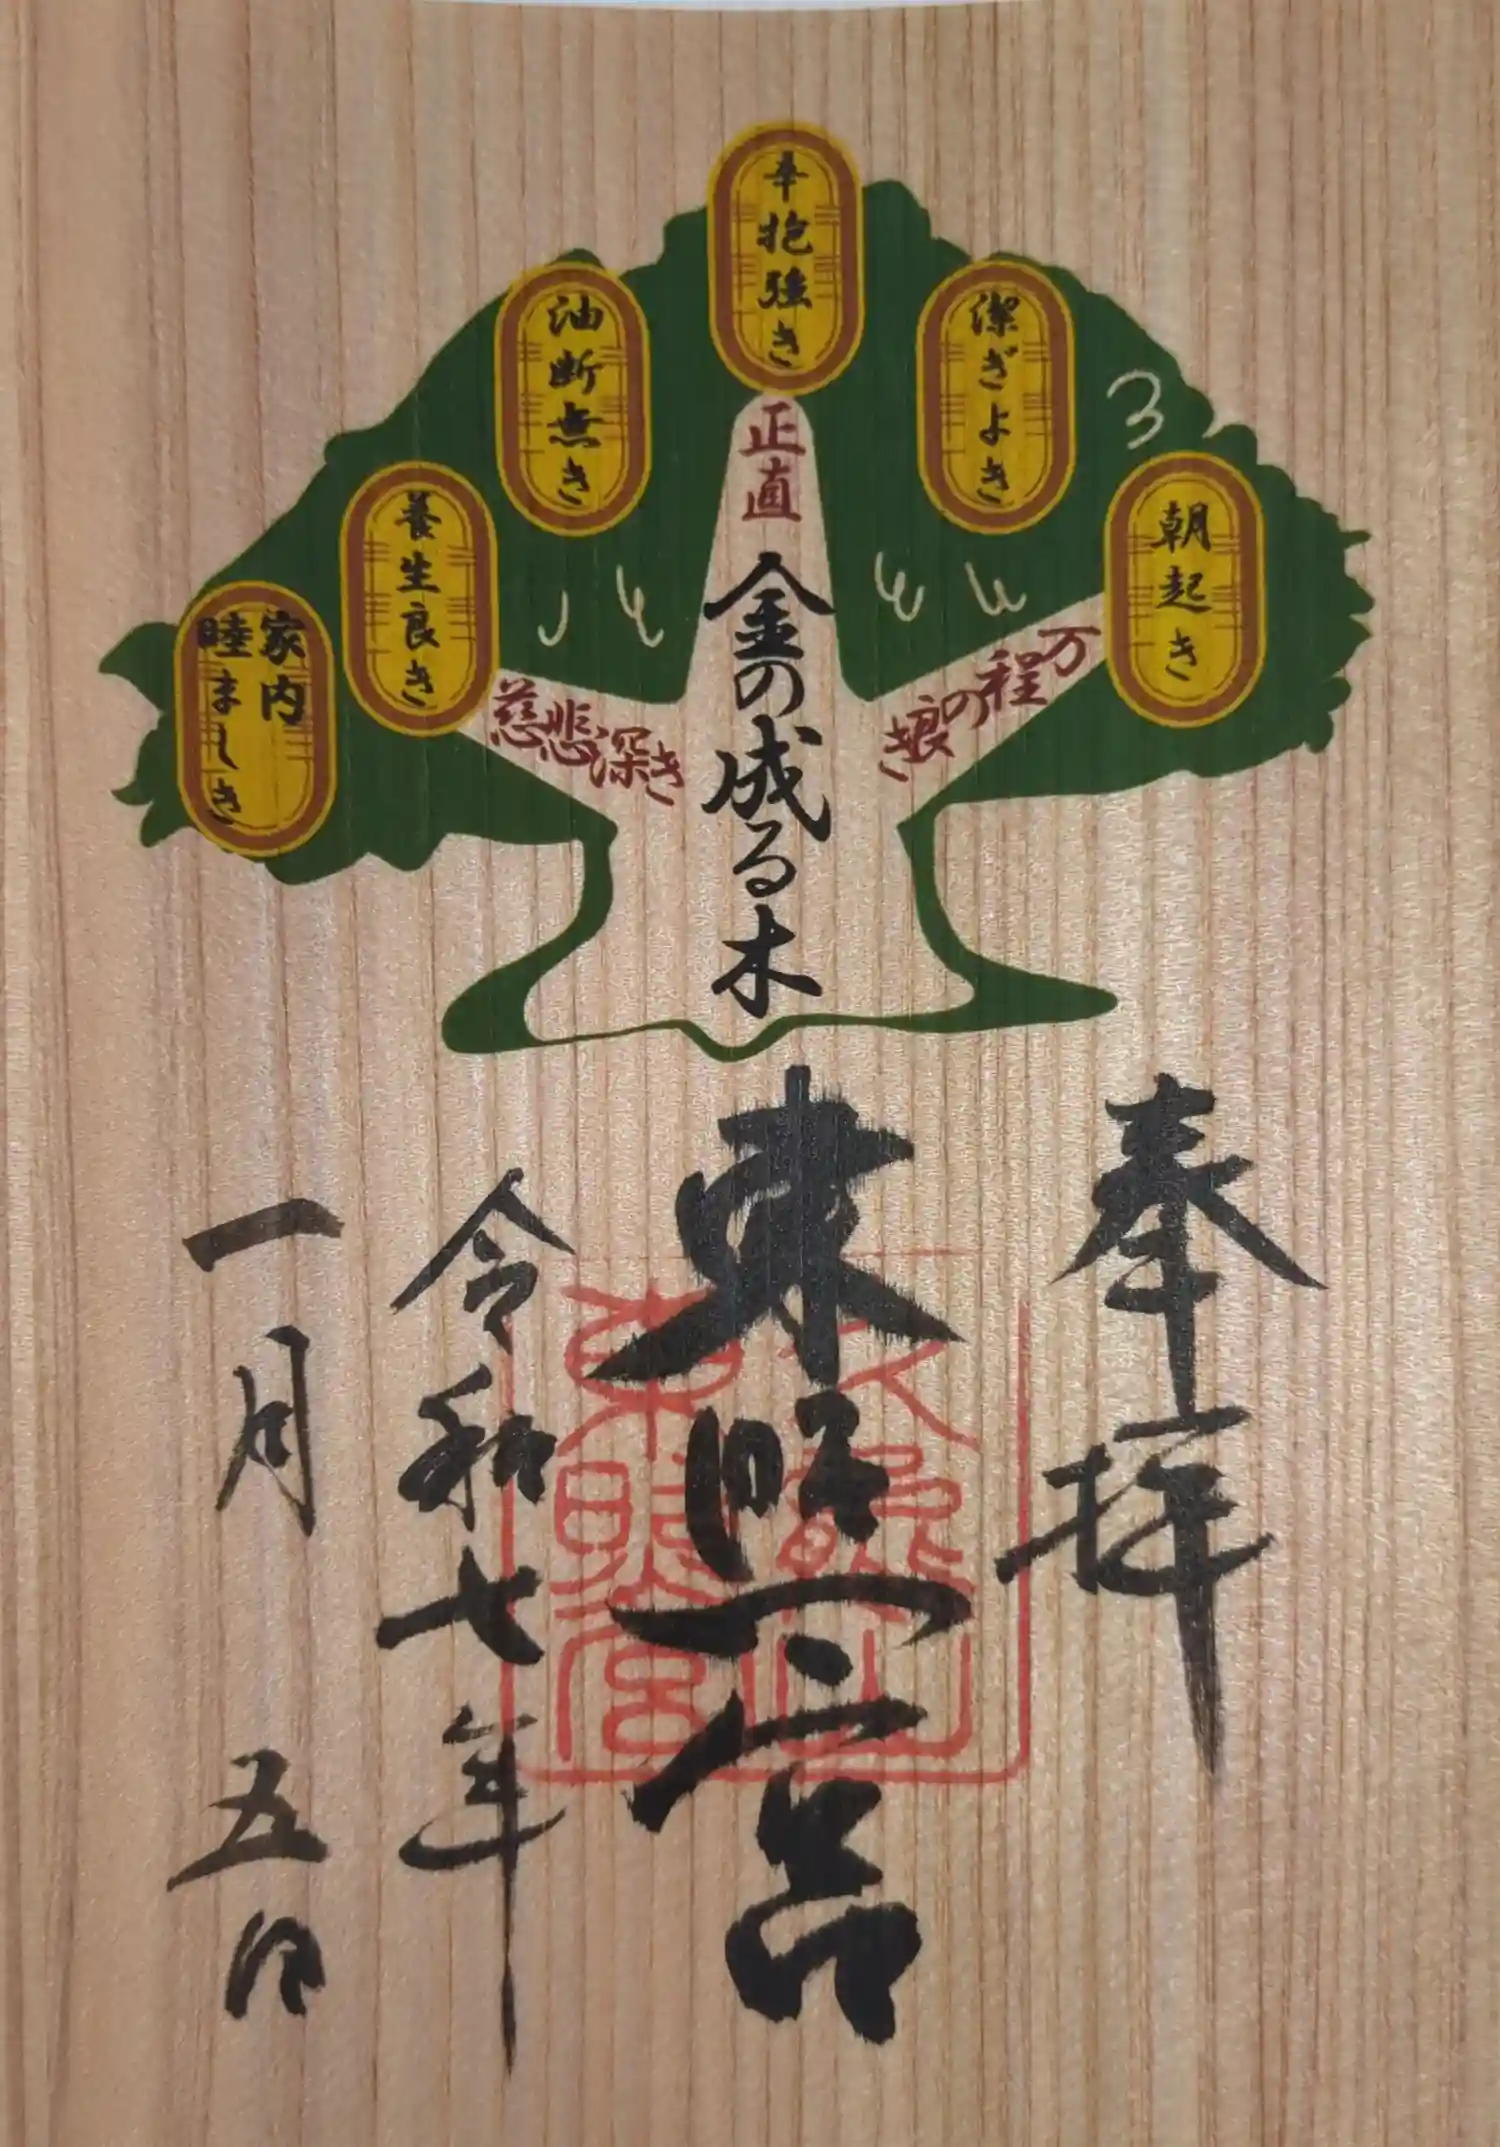 朝起き
潔ぎよき
辛抱強き
油断無き
養生良き
家内
睦ましき
万程の
正直
慈悲深き
金の成る木
奉拝
東照宮
令和七年
一月五日